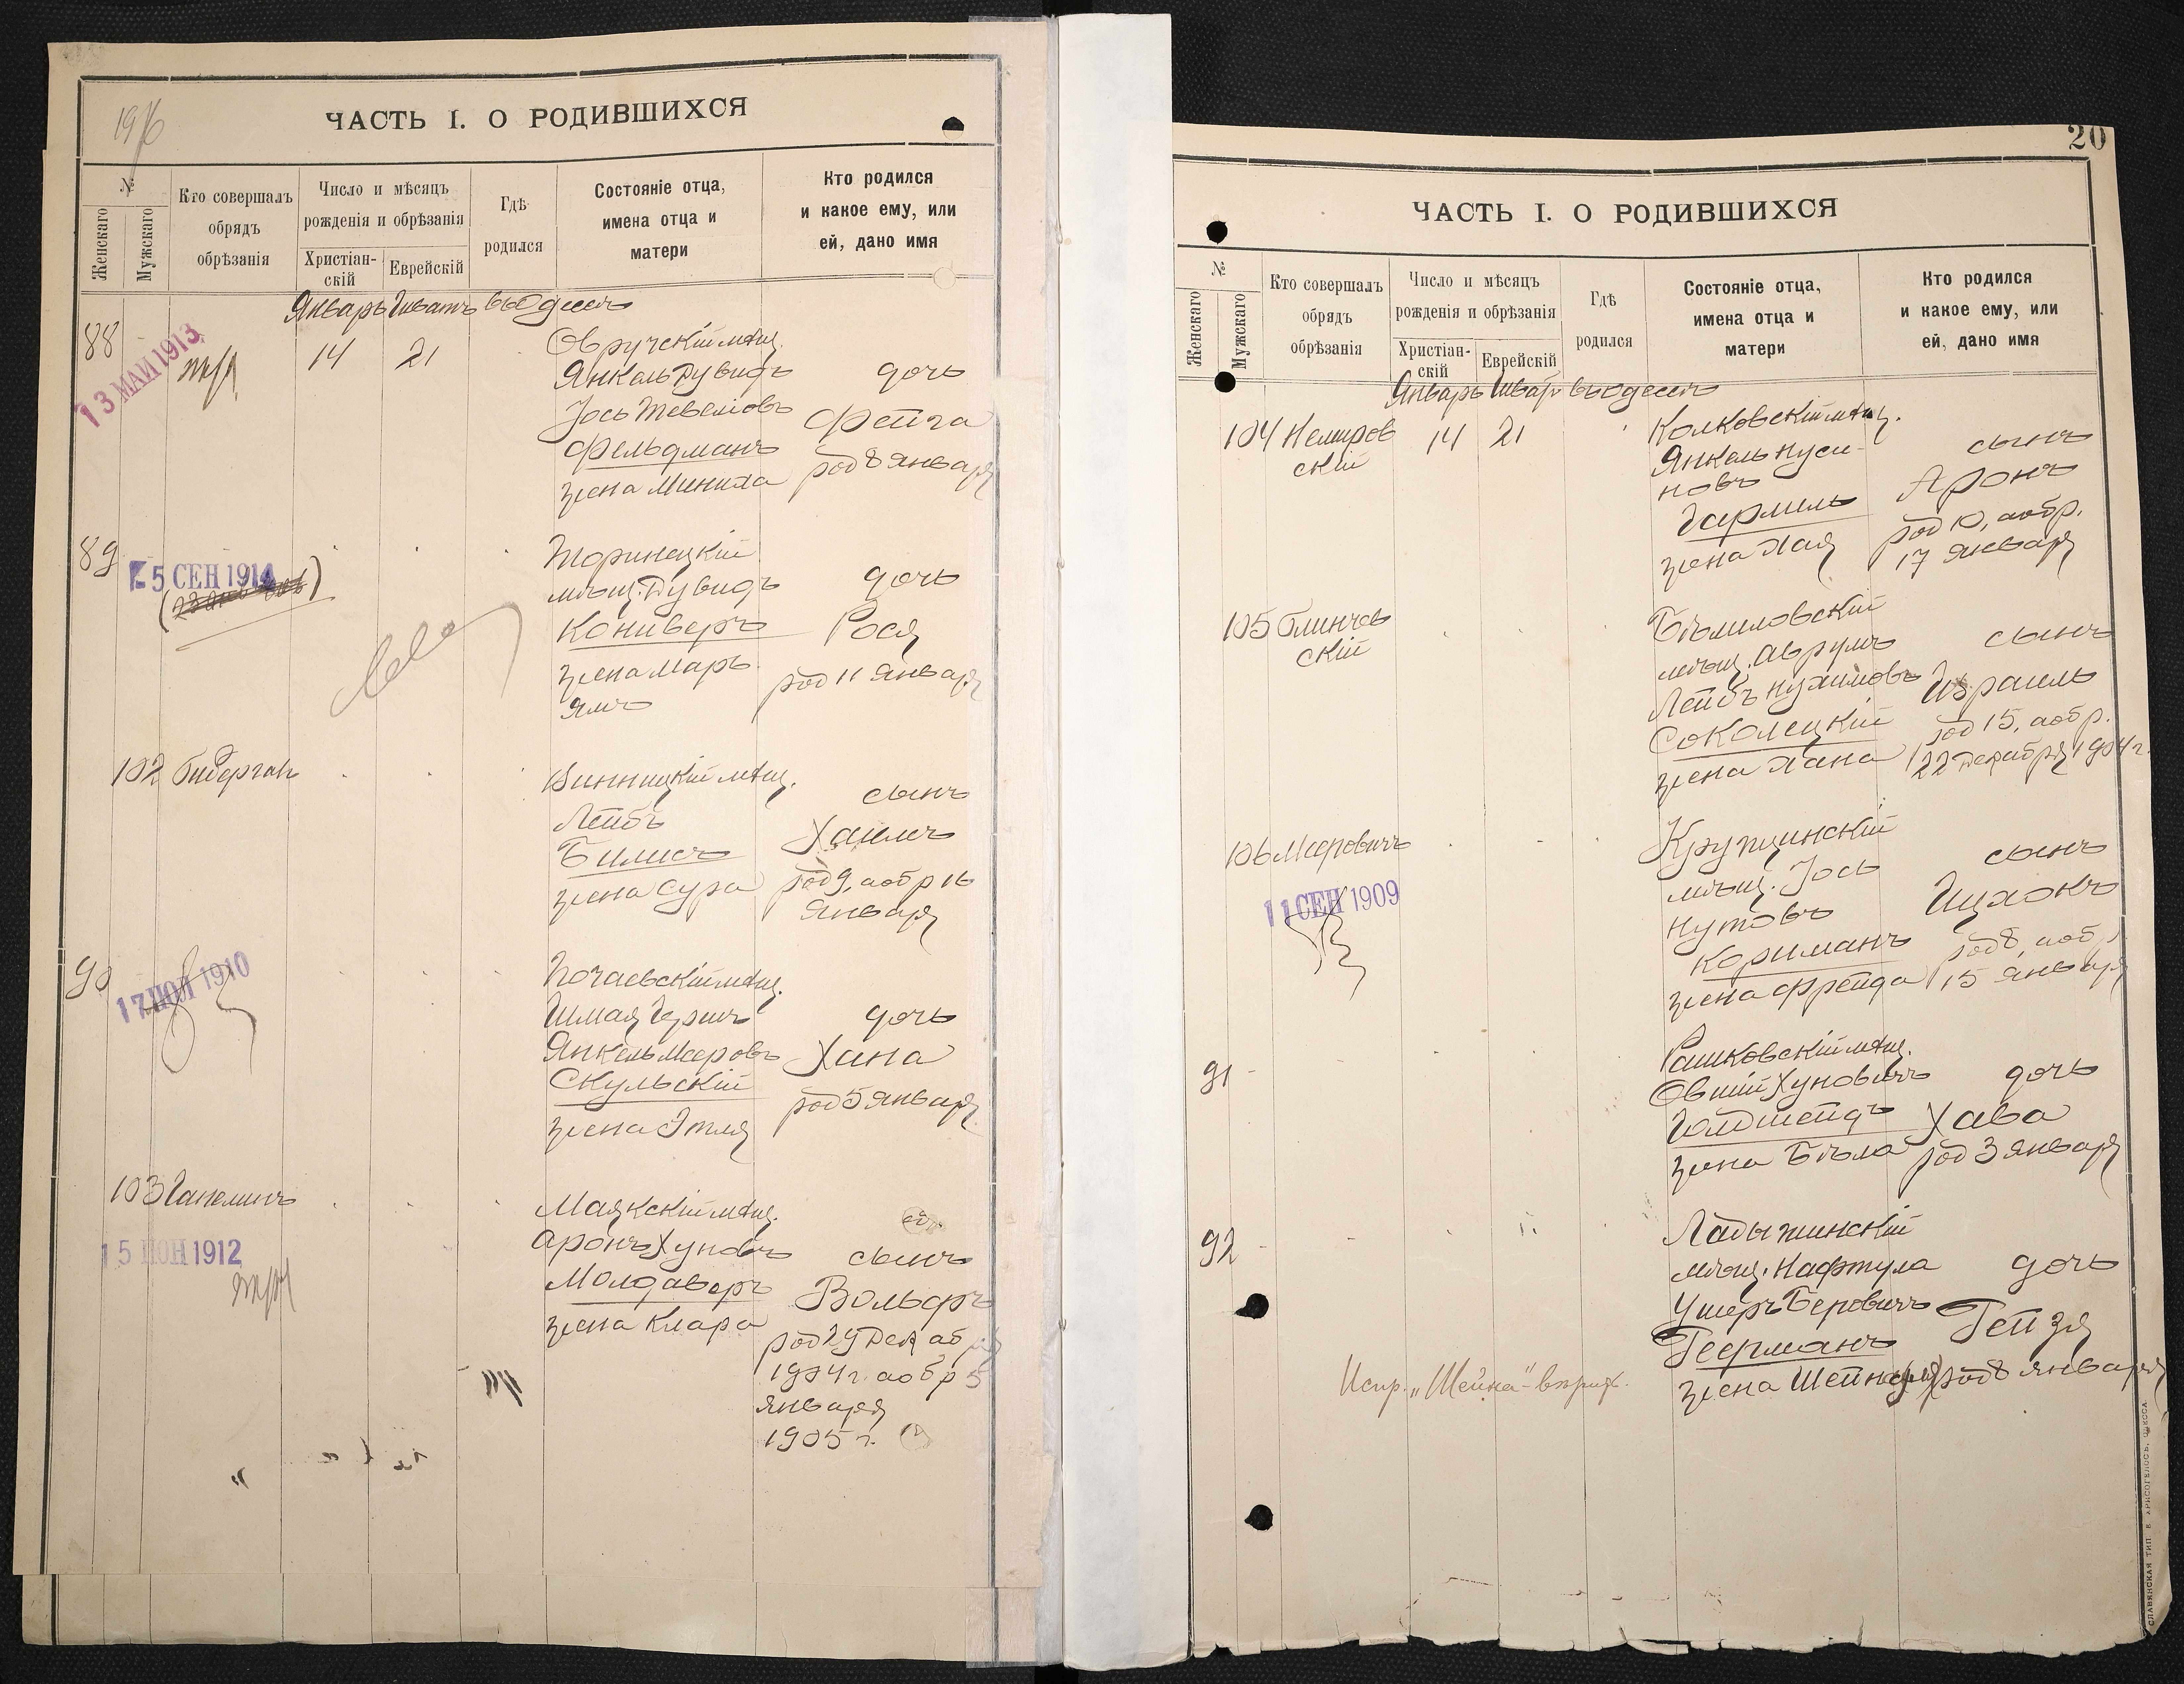 1916
ЧАСТЬ I. О РОДИВШИХСЯ
№
Женскаго
Мужскаго
Кто совершалъ обрядъ обрѣзанія
Число и мѣсяцъ рожденія и обрѣзанія
Христіан-скій
Еврейскій
Гдѣ родился
Состояніе отца, имена отца и матери
Кто родился и какое ему, или ей, дано имя
Январь Шватъ въ Одессѣ
88
13 МАЙ 1913
14 21
Овручскій мѣщ.
Янкель Дувидъ
Іось Тевеліовъ
Фельдманъ
жена Миниха
дочь
Фейга
род 8 января
89
5 СЕН 1914
мѣщ. Дувидъ
Кониверъ
жена Марь
ямъ
дочь
Рося
род 11 января
102
Винницкій мѣщ.
Лейбъ
Билисъ
жена Сура
сынъ
Хаимъ
род 9, а обр 16
января
90
17 1910
Почаевскій мѣщ.
Шмая Гершъ
Янкель Мееровъ
Скульскій
жена Этля
дочь
Хана
род 5 января
103 Гапелинъ
15 ІЮН 1912
Маякскій мѣщ.
Аронъ Хуновъ
Молдаверъ
жена Клара
сынъ
Вольфъ
род 29 декабря
1904 г. а обр 5
января
1905 г.
20
ЧАСТЬ I. О РОДИВШИХСЯ
№
Женскаго
Мужскаго
Кто совершалъ обрядъ обрѣзанія
Число и мѣсяцъ рожденія и обрѣзанія
Христіан-скій
Еврейскій
Гдѣ родился
Состояніе отца, имена отца и матери
Кто родился и какое ему, или ей, дано имя
Январь Шватъ въ Одессѣ
104 Немиров
скій
14 21
Колковскій мѣщ.
Янкель Нуси-
новъ
Гармель
жена Хая
сынъ
Аронъ
род 10, а обр.
17 января
105 Блинчев
скій
Бѣлиловскій
мѣщ. Аврумъ
Лейбъ Нухимовъ
Соколецкій
жена Хана
сынъ
Израиль
род 15, а обр.
22 декабря 1904 г.
106 Мееровичъ
11 СЕН 1909
мѣщ. Іось
Нутовъ
Кориманъ
жена Фрейда
сынъ
Ицхокъ
род 8, а обр
15 января
91
Рашковскій мѣщ.
Овшій Хуновичъ
Гольдшейдъ
жена Бѣла
дочь
Хава
род 3 января
92
Ладыжинскій
мѣщ. Нафтула
Ушеръ Беровичъ
Геерманъ
жена Шейна
дочь
Гейзя
род 8 января
Испр. „Шейна“
СЛАВЯНСКАЯ ТИП. Е. ХРИСОГЕЛОСЪ, ОДЕССА.